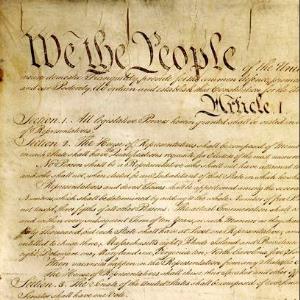 We the People of the Unit
insure domestic Tranquility, provide for the common defence, promo
and our Posterity, do ordain and establish this Constitution for the
Article I
Section. 1. All legislative Powers herein granted shall be vested in
of Representatives.
Section. 2. The House of Representatives shall be composed of Mem
in each State shall have Qualifications requisite for Electors of the most numerous
No Person shall be a Representative who shall not have
and who shall not, when elected, be an Inhabitant of that State in which
Representatives and direct Taxes shall be apportioned among the several
and within every subsequent Term of ten Years, in such Manner as they
thirty Thousand, but each State shall have at Least one Representative
entitled to chuse three, Massachusetts eight, Rhode Island and Providence
eight, Delaware one, Maryland six, Virginia ten, North Carolina five
When vacancies happen in the Representation from any
The House of Representatives shall chuse their Speaker and other
Section. 3. The Senate of the United States shall be composed of two
Senator shall have one Vote.